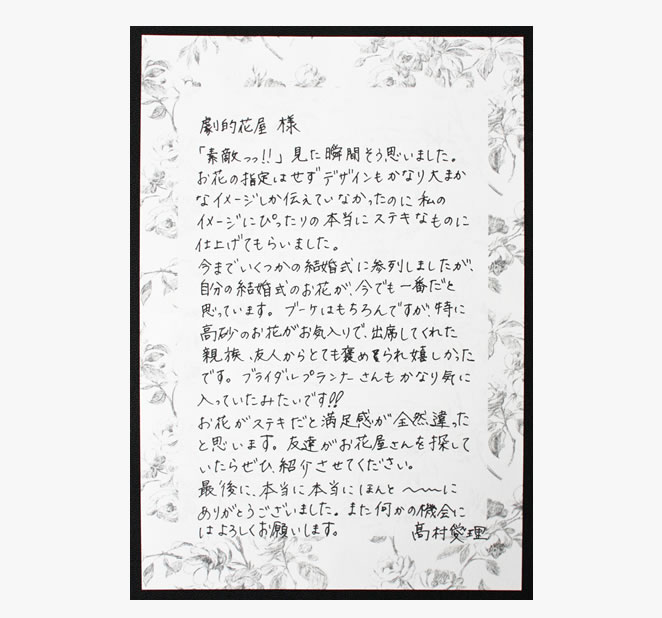 劇的花屋 様
「素敵っっ!!」見た瞬間そう思いました。
お花の指定はせずデザインもかなり大まか
なイメージしか伝えていなかったのに私の
イメージにぴったりの本当にステキなものに
仕上げてもらいました。
今までいくつかの結婚式に参列しましたが、
自分の結婚式のお花が、今でも一番だと
思っています。ブーケはもちろんですが、特に
高砂のお花がお気入りで、出席してくれた
親族、友人からとても褒められ嬉しかった
です。ブライダルプランナーさんもかなり気に
入っていたみたいです!!
お花がステキだと満足感が全然違った
と思います。友達がお花屋さんを探して
いたらぜひ、紹介させてください。
最後に、本当に本当にほんと〜〜に
ありがとうございました。また何かの機会に
はよろしくお願いします。 高村愛理